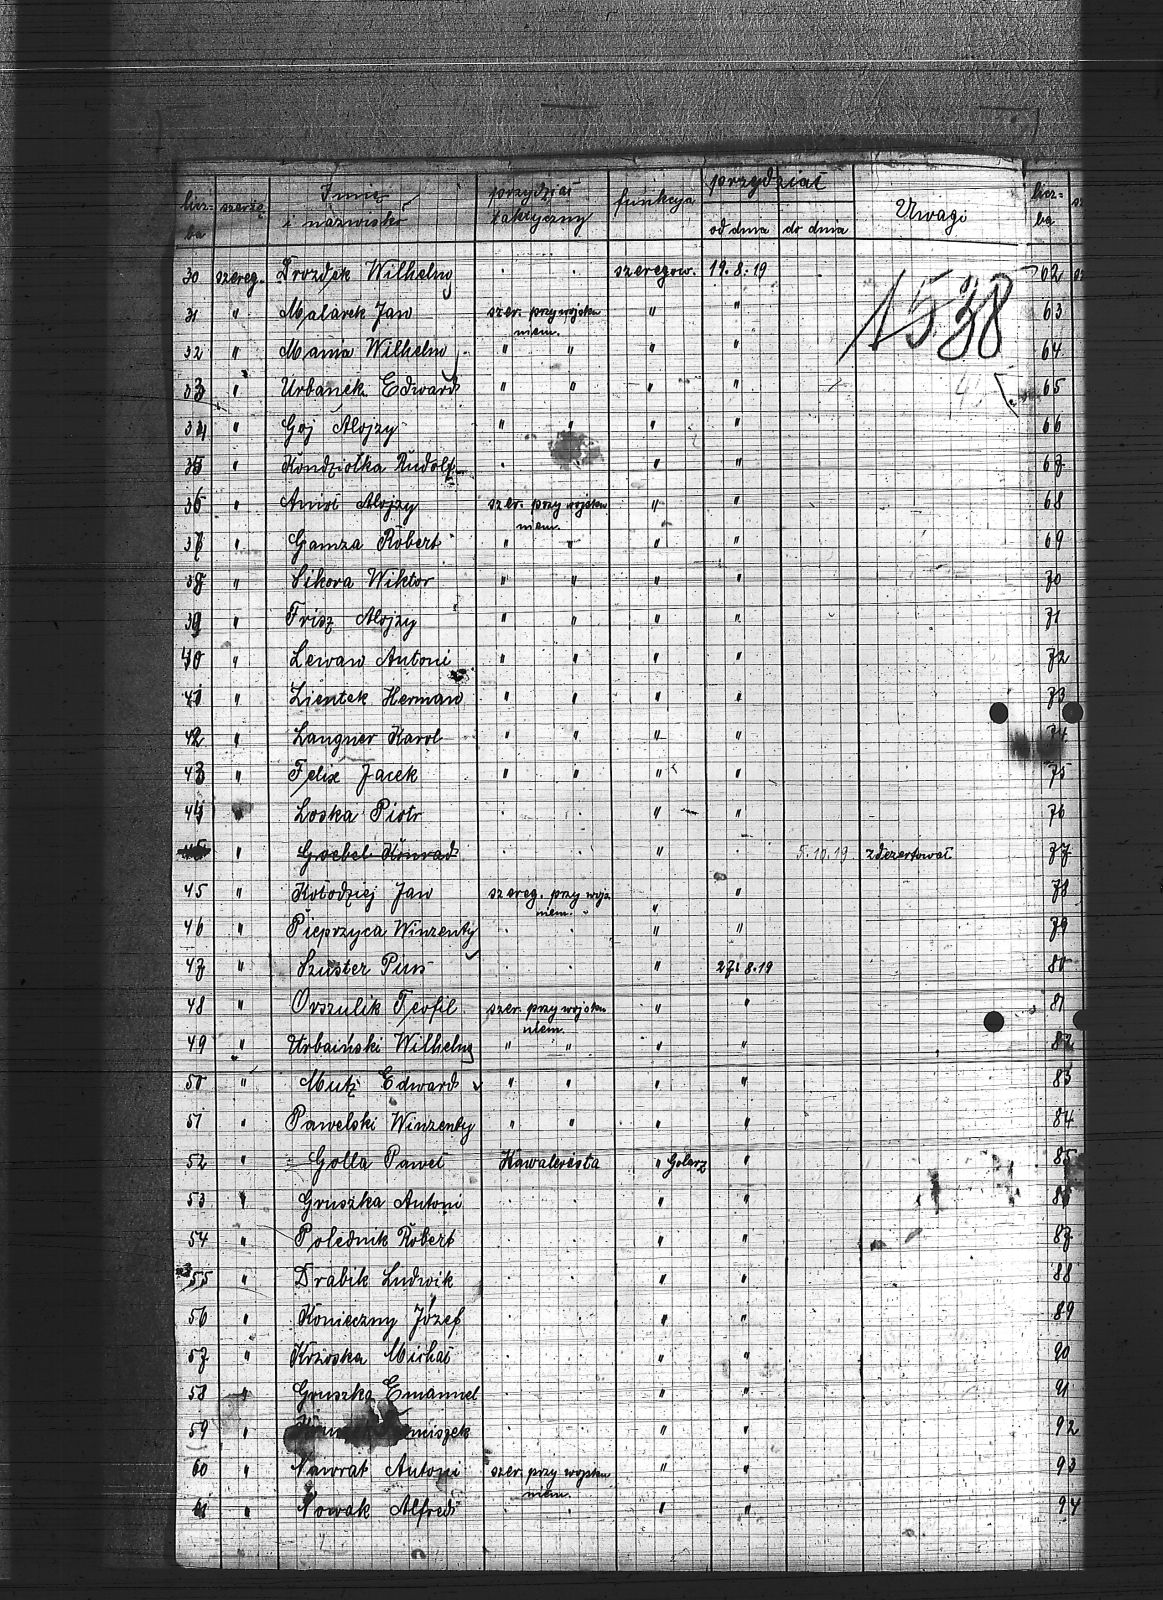 licz- szarża Imię przydział funkcja przydział Uwagi licz-
ba i nazwisko taktyczny od dnia do dnia ba
30 szereg. Drozdek Wilhelm szeregow. 19.8.19 62
1538
31 " Malarek Jan szer. przy wojsku " " 63
niem.
32 " Mania Wilhelm " " " " 64
33 " Urbanek Edward " " " " 65
34 " Goj Alojzy " " " " 66
35 " Kondziołka Rudolf " " 67
36 " Amoi Alojzy szer. przy wojsku " " 68
niem.
37 " Gamza Robert " " " " 69
38 " Sikora Wiktor " " " " 70
39 " Frisz Alojzy " " " " 71
40 " Lewan Antoni " " " " 72
41 " Zientek Herman " " " " 73
42 " Langner Karol " " " " 74
43 " Felix Jacek " " " " 75
44 " Loska Piotr " " 76
" Goebel Konrad " 5.10.19 zdezertował 77
45 " Kołodziej Jan szereg. przy wojs. " 78
niem. "
46 " Pieprzyca Winzenty " " 79
47 " Szuster Pius " 27.8.19 80
48 " Orszulik Teofil szer. przy wojsku " " 81
niem.
49 " Urbański Wilhelm " " " " 82
50 " Mutz Edward " " " " 83
51 " Pawelski Winzenty " " " " 84
52 " Golla Paweł Kawalerista " Golarz " 85
53 " Gruszka Antoni " " 86
54 " Polednik Robert " " 87
55 " Drabik Ludwik " " 88
56 " Konieczny Józef " " 89
57 " Krzoska Michał " " 90
58 " Gruszka Emanuel " " 91
59 " " " 92
60 " Nawrat Antoni szer. przy wojsku " " 93
niem.
61 " Nowak Alfred " " 94